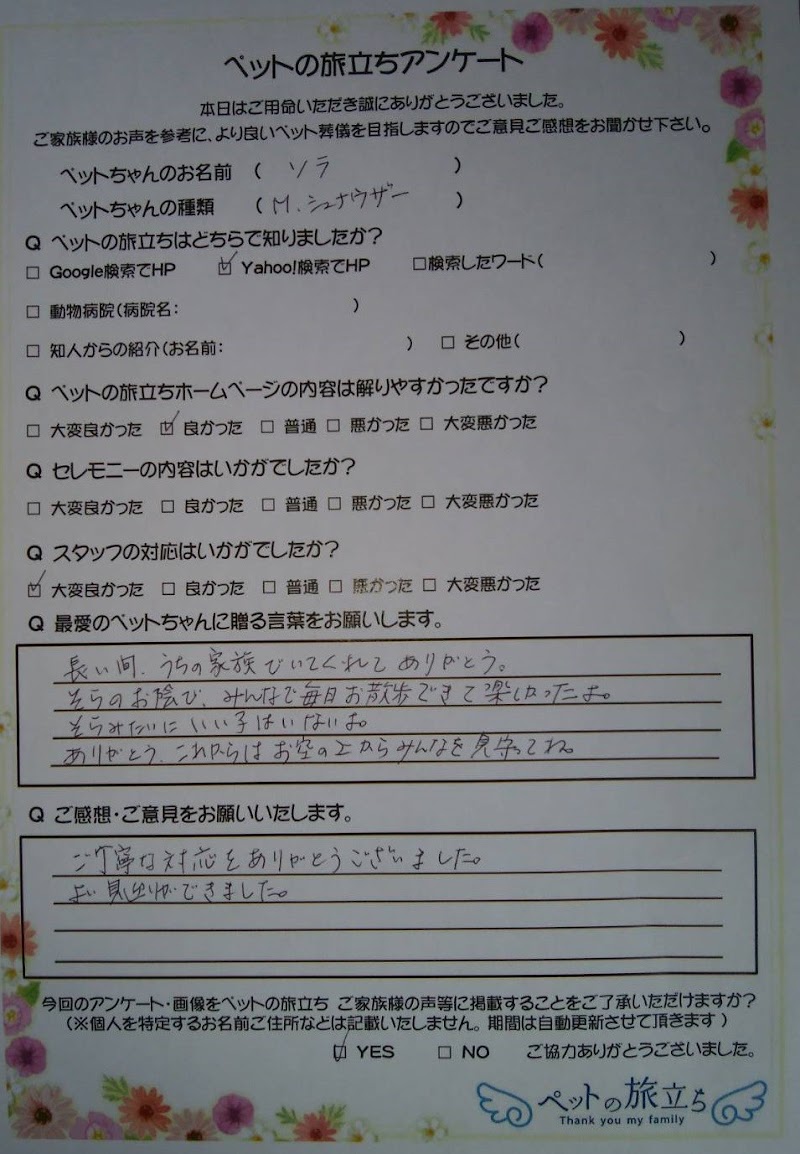 ペットの旅立ちアンケート
本日はご用命いただき誠にありがとうございました。
ご家族様のお声を参考に、より良いペット葬儀を目指しますのでご意見ご感想をお聞かせ下さい。
ペットちゃんのお名前 ( ソラ )
ペットちゃんの種類 ( M.シュナウザー )
Q ペットの旅立ちはどちらで知りましたか?
□ Google検索でHP ☑ Yahoo!検索でHP □検索したワード( )
□ 動物病院(病院名: )
□ 知人からの紹介(お名前: ) □ その他( )
Q ペットの旅立ちホームページの内容は解りやすかったですか?
□ 大変良かった ☑ 良かった □ 普通 □ 悪かった □ 大変悪かった
Q セレモニーの内容はいかがでしたか?
□ 大変良かった □ 良かった □ 普通 □ 悪かった □ 大変悪かった
Q スタッフの対応はいかがでしたか?
☑ 大変良かった □ 良かった □ 普通 □ 悪かった □ 大変悪かった
Q 最愛のペットちゃんに贈る言葉をお願いします。
長い間、うちの家族でいてくれてありがとう。
そらのお陰で、みんなで毎日お散歩できて楽しかったよ。
そらみたいにいい子はいないよ。
ありがとう、これからはお空の上からみんなを見守ってね。
Q ご感想・ご意見をお願いいたします。
ご丁寧な対応をありがとうございました。
よい見送りができました。
今回のアンケート・画像をペットの旅立ち ご家族様の声等に掲載することをご了承いただけますか?
(※個人を特定するお名前ご住所などは記載いたしません。期間は自動更新させて頂きます)
☑ YES □ NO ご協力ありがとうございました。
ペットの旅立ち
Thank you my family